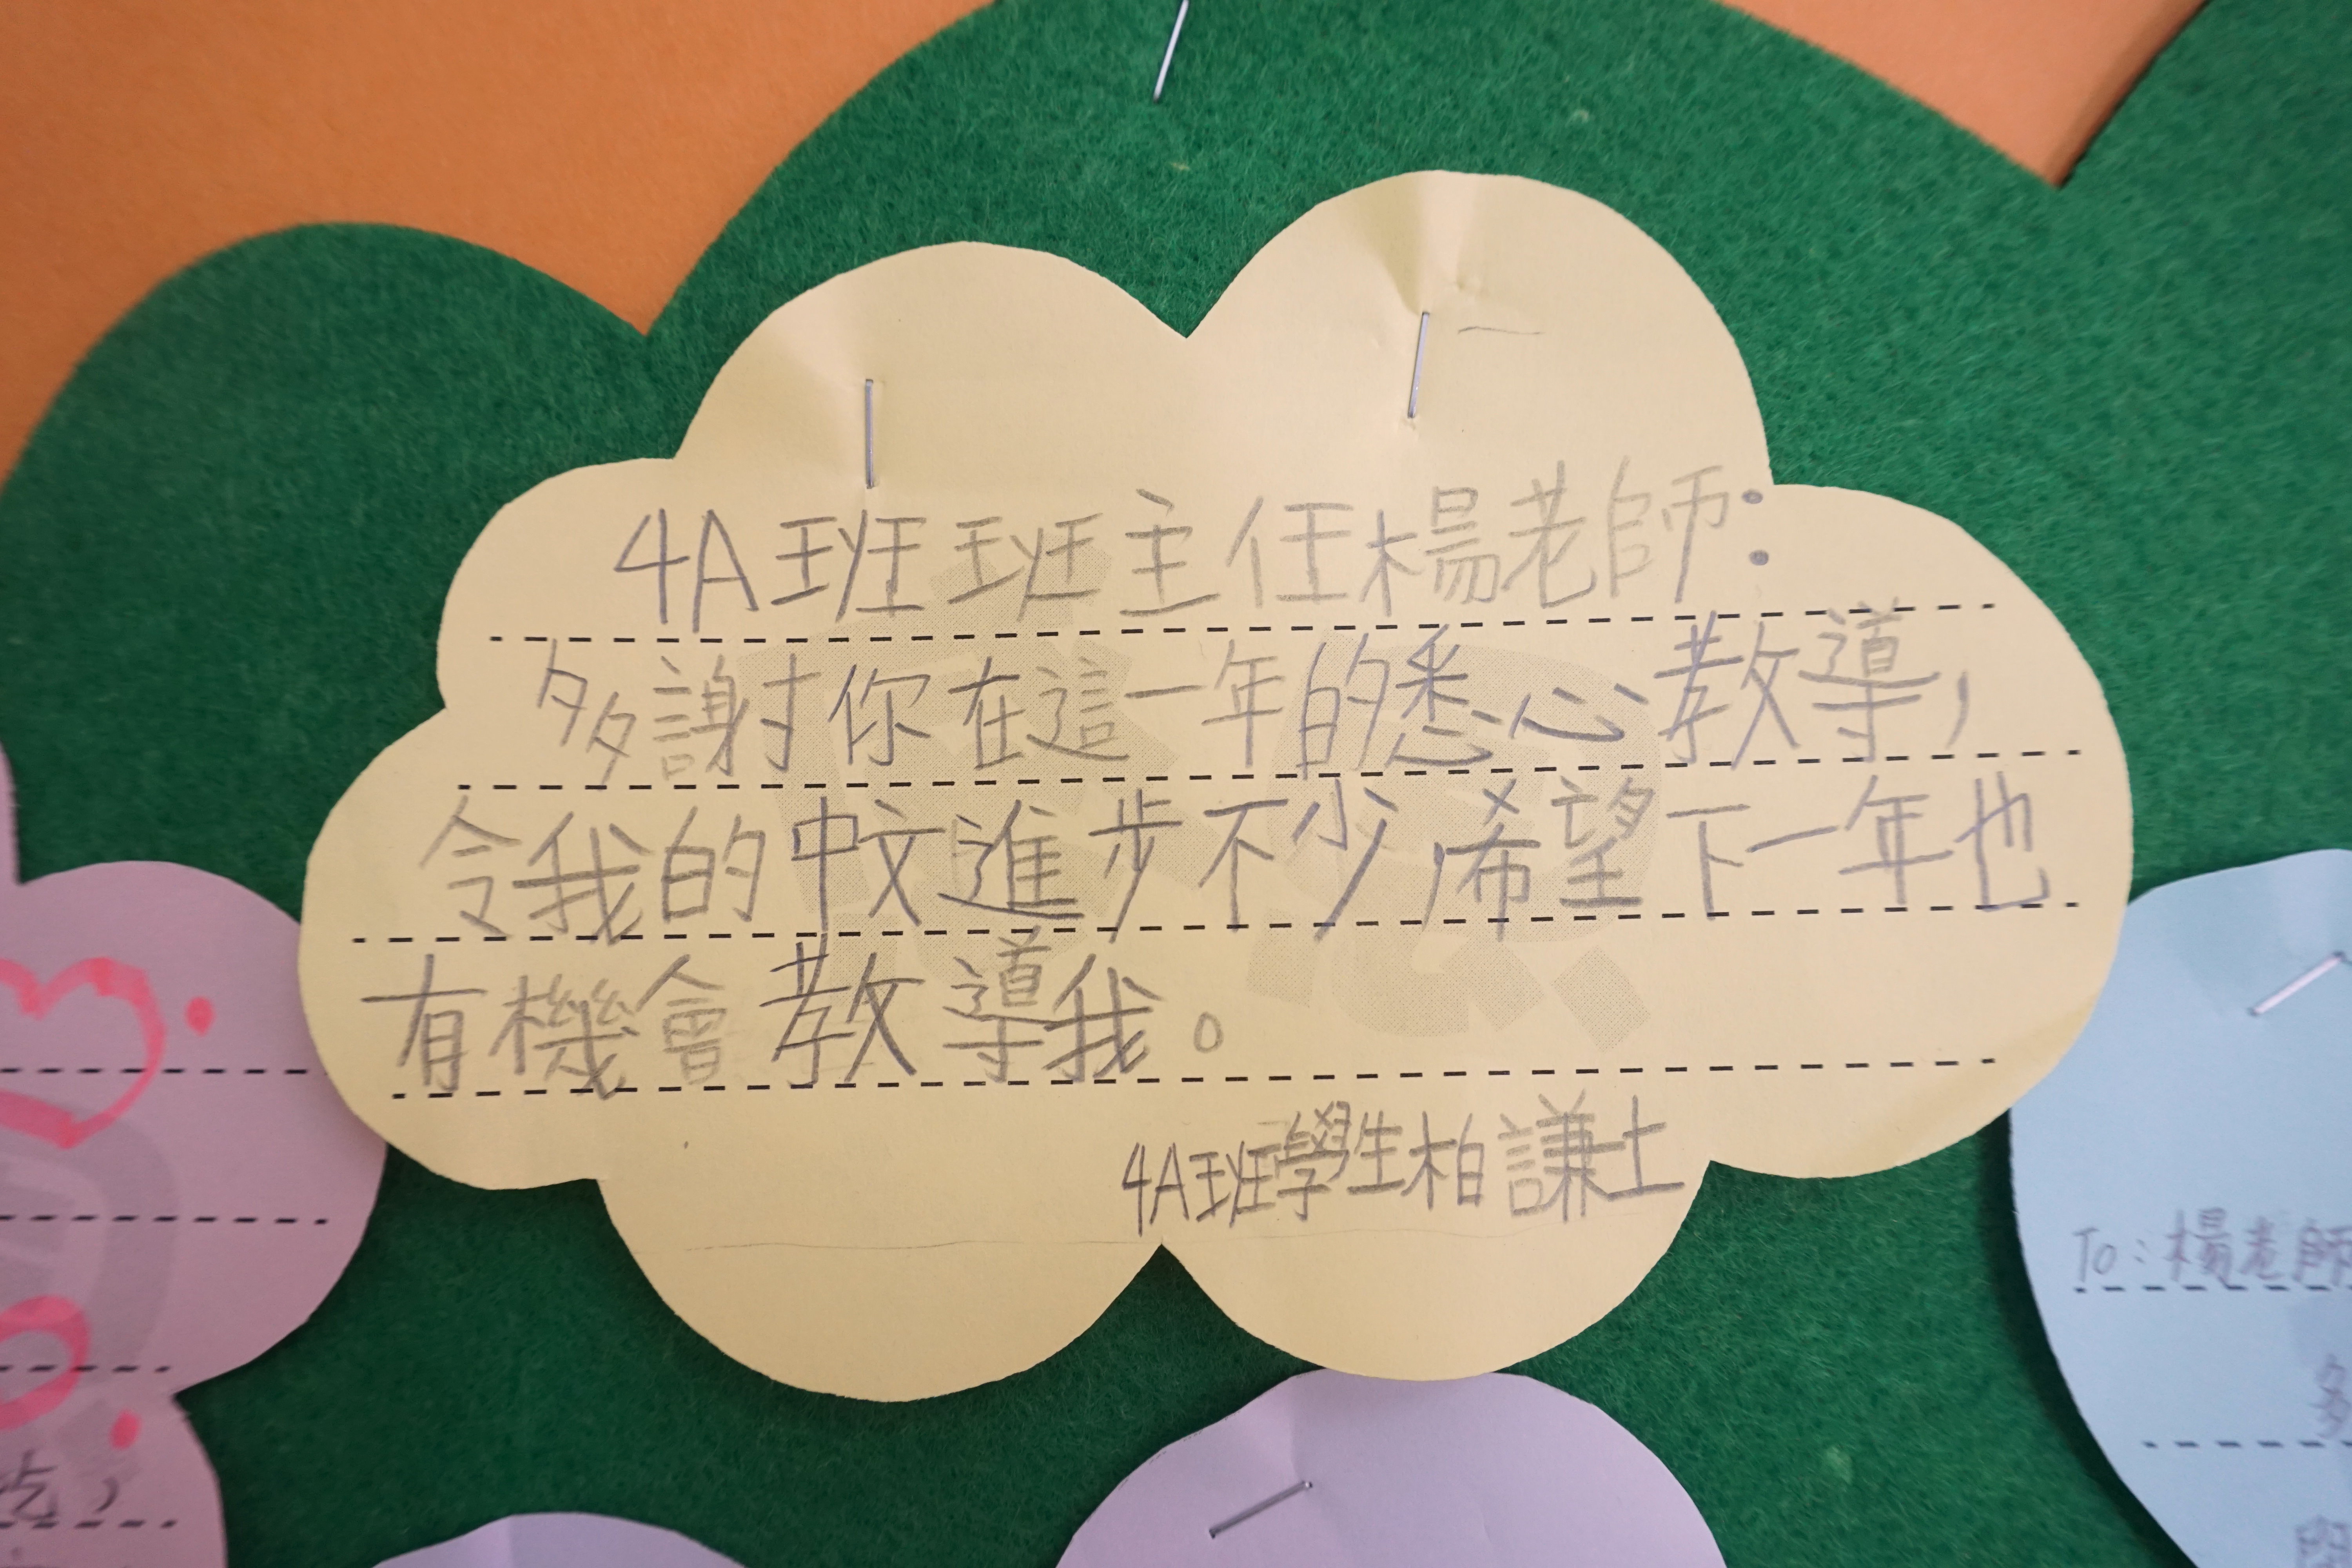 4A班班主任楊老師：
多謝你在這一年的悉心教導，
令我的中文進步不少，希望下一年也
有機會教導我。
4A班學生柏謙士
To：楊老師